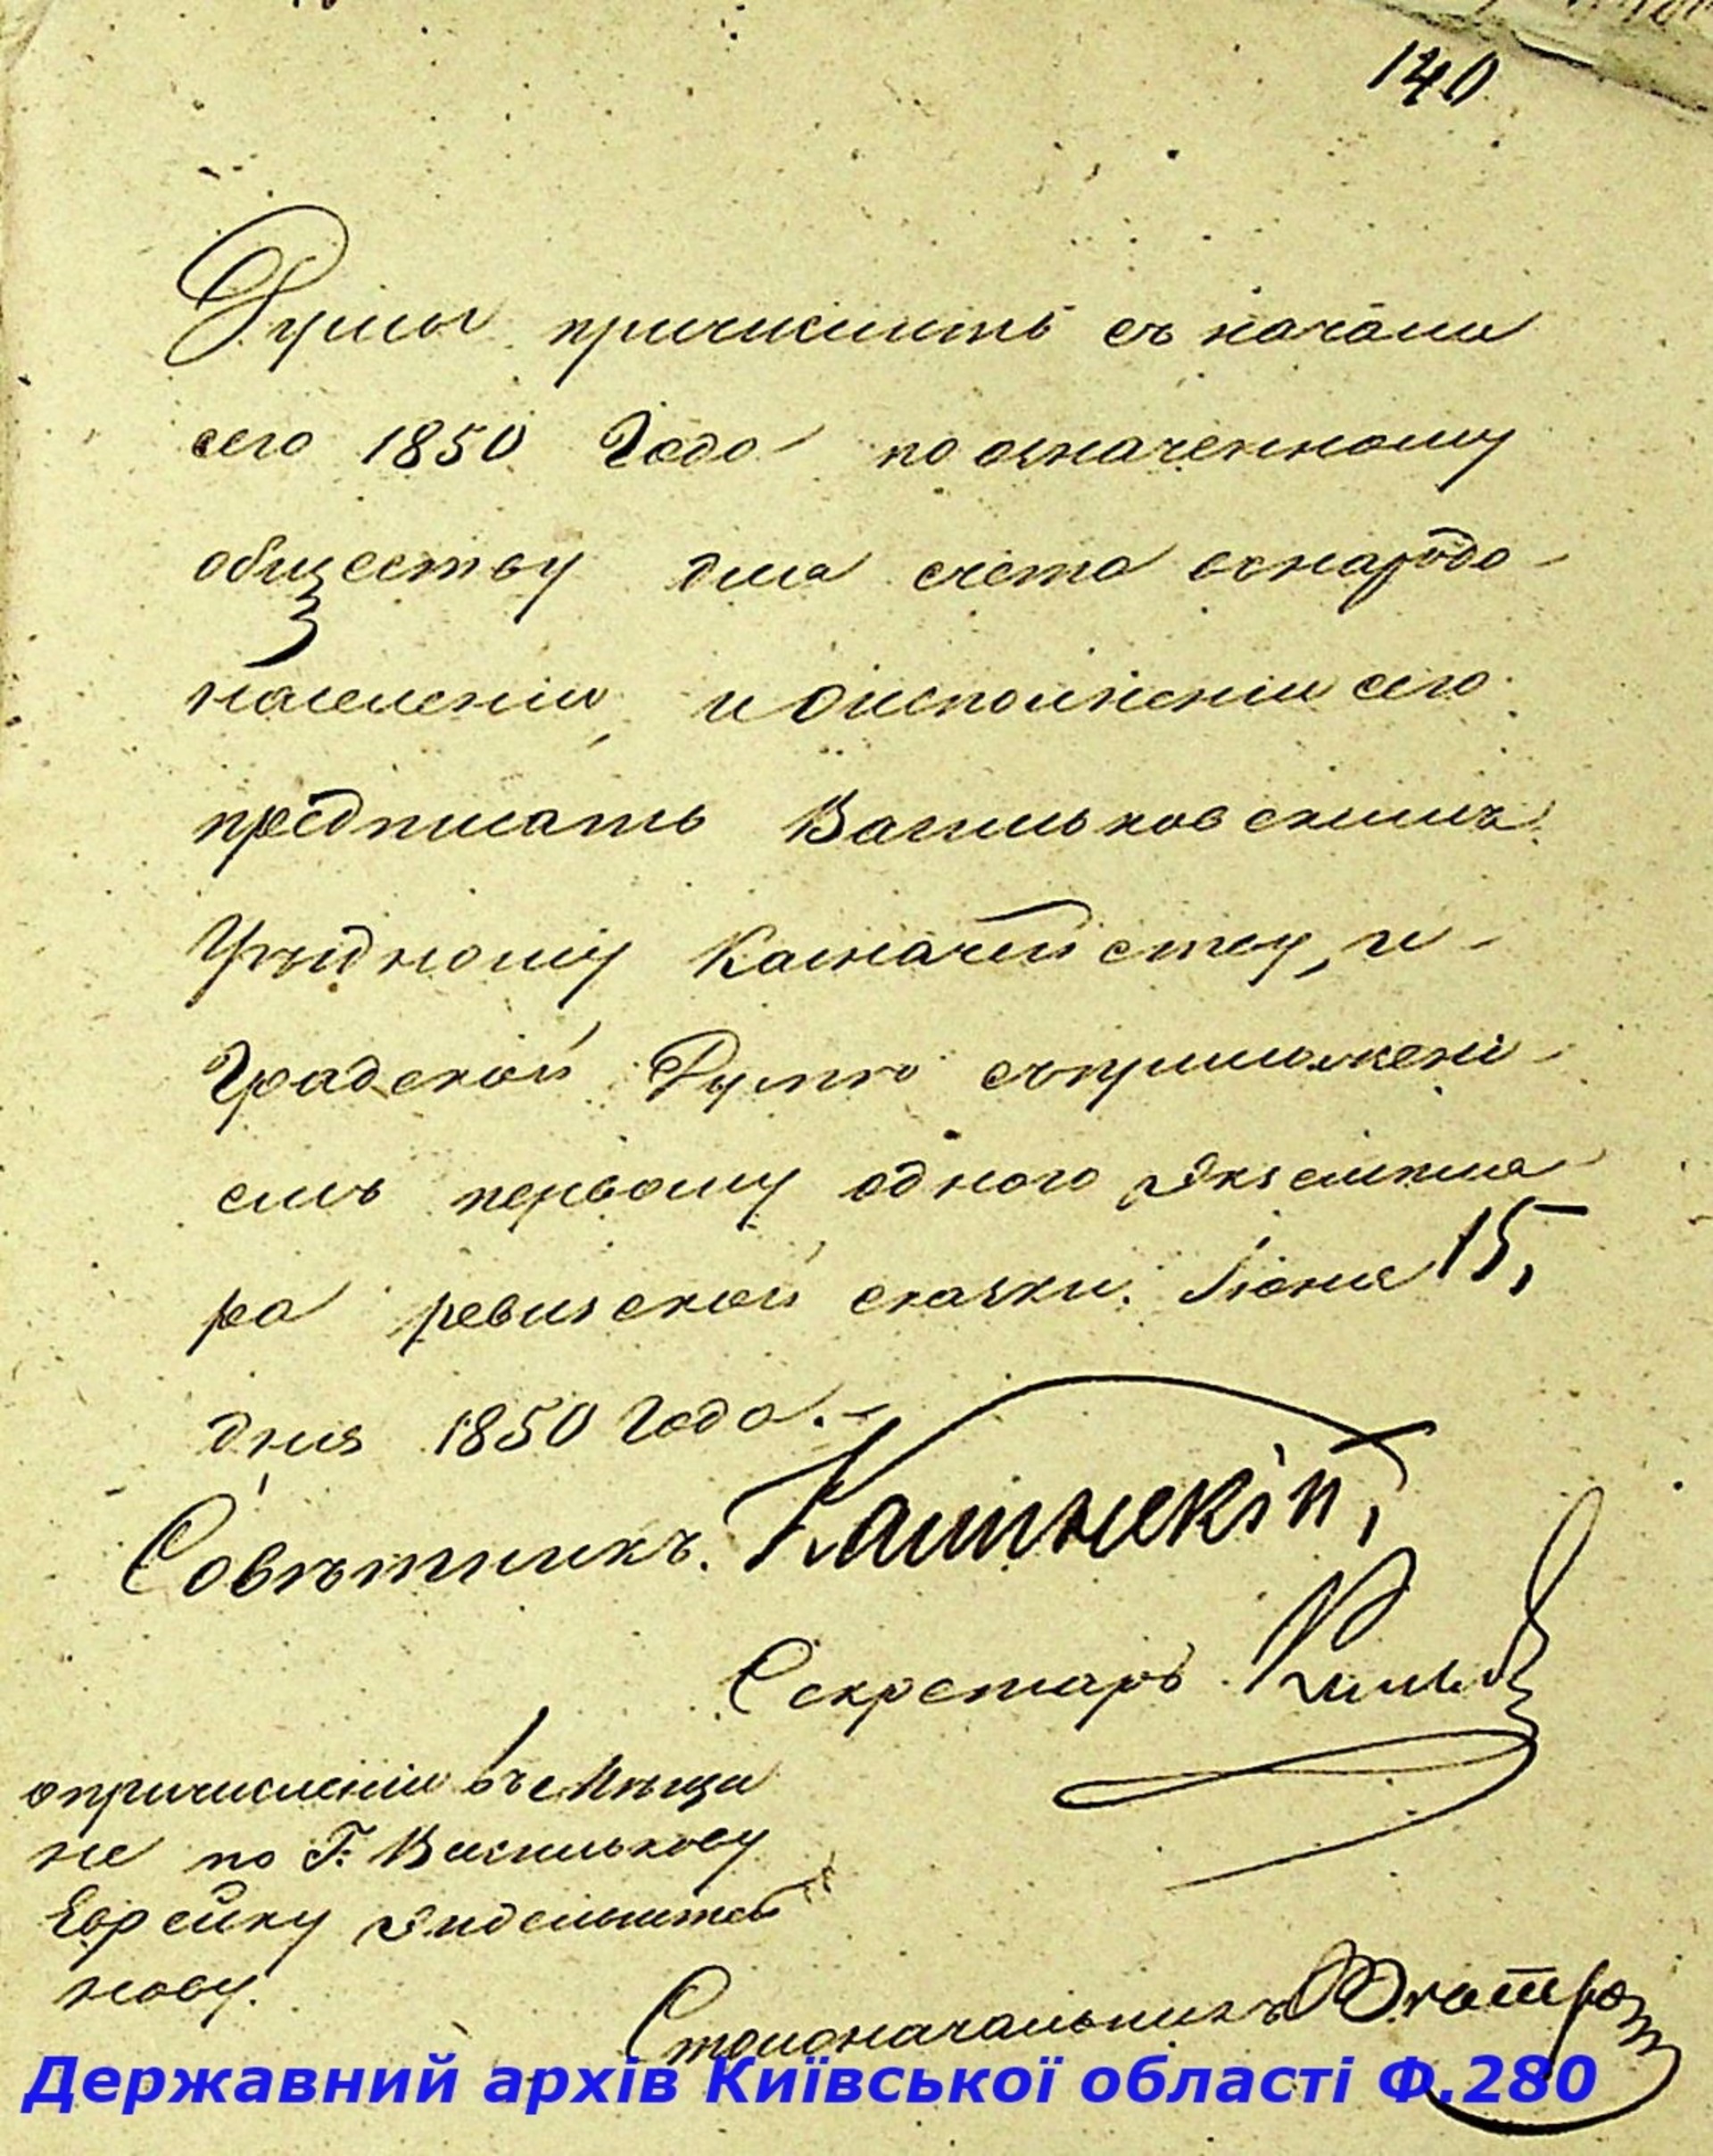 140
Думы причислить съ начала
сего 1850 Года по означенному
обществу для счета о народо-
населеніи, и о исполненіи сего
предписать Васильковскимъ
Уѣздному Казначейству, и-
Градской Думѣ съ приложені-
емъ первому одного экземпля
ра ревизской сказки. Іюня 15,
дня 1850 Года.-
Совѣтникъ.
Секретарь
о причисленіи въ Мѣща
не по Г: Василькову
Еврейку
нову.
Столоначальникъ
Державний архів Київської області Ф.280